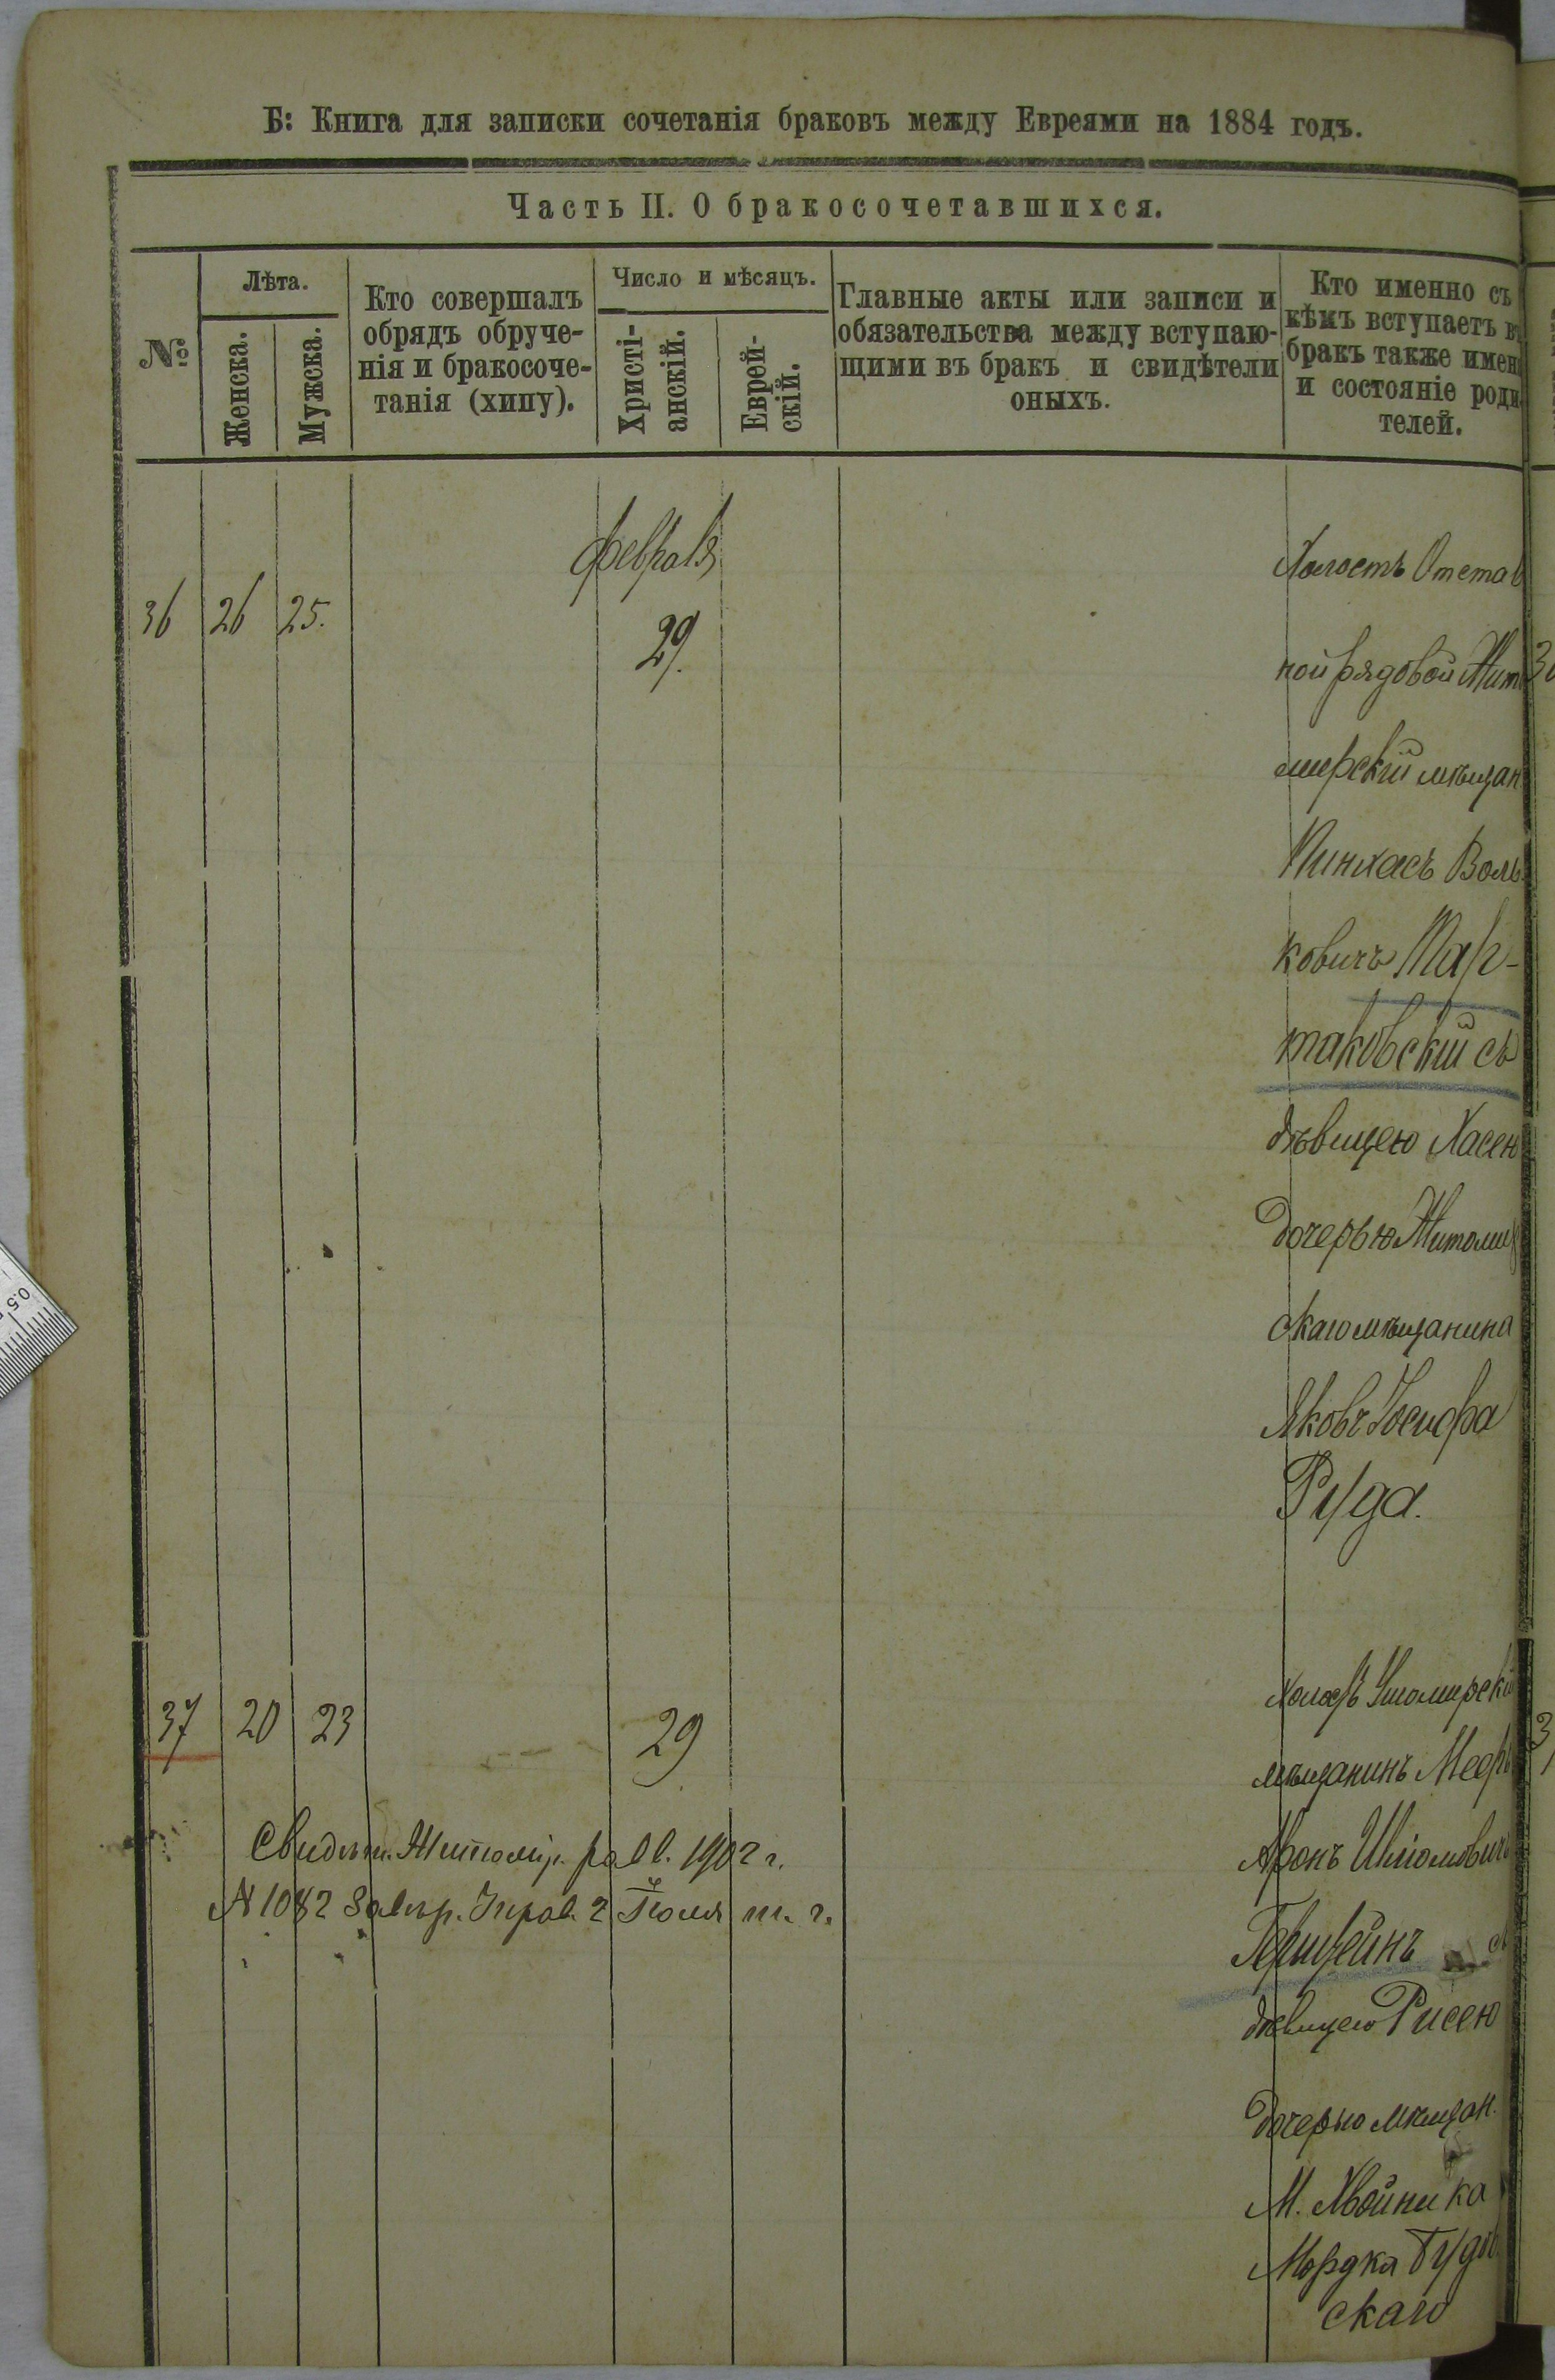 Б: Книга для записки сочетанія браковъ между Евреями на 1884 годъ.
Часть II. О бракосочетавшихся.
№
Лѣта.
Женска.
Мужска.
Кто совершалъ
обрядъ обруче-
нія и бракосоче-
танія (хипу).
Число и мѣсяцъ.
Христі-
анскій.
Еврей-
скій.
Главные акты или записи и
обязательства между вступаю-
щими въ бракъ и свидѣтели
оныхъ.
Кто именно съ
кѣмъ вступаетъ въ
бракъ также имен
и состояніе роди
телей.
февраля
36 26 25. 29.
Холостъ Отстав
ной рядовой Жит
мирскій мѣщан
Пинхасъ Воль
ковичъ Пар-
таковскій съ
дѣвицею Хасею
дочерью Житомир
скаго мѣщанина
Яковъ Іосифа
Руда.
37 20 23 29
Холостъ Ушомирскій
мѣщанинъ Меер
Аронъ Шліомовичъ
Герштейнъ съ
дѣвицею Рисею
дочерью мѣщан.
М. Хвойника
Мордка Будов
скаго
Свидѣт. Житомір. рав. 1902 г.
№ 1082 Завѣр. Управ. 2 Іюля т. г.
0.5